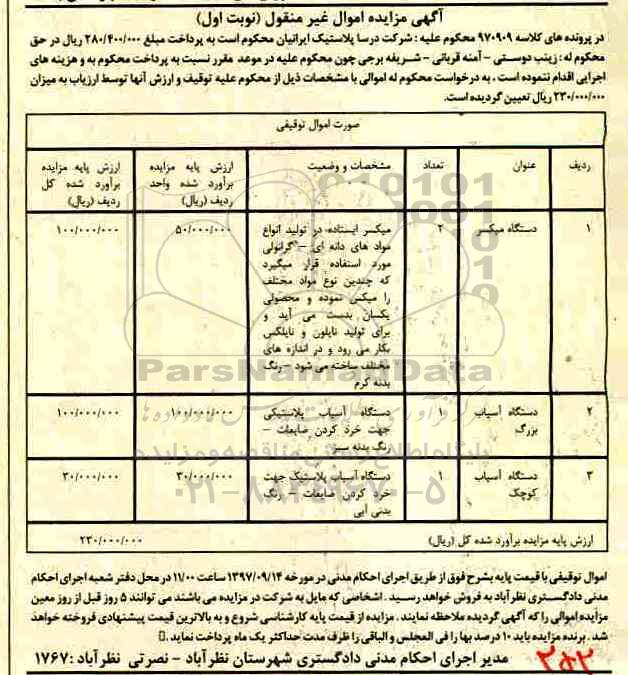 آگهی مزایده اموال غیر منقول (نوبت اول)
در پرونده های کلاسه ۹۷۰۹۰۹ محکوم علیه : شرکت درسا پلاستیک ایرانیان محکوم است به پرداخت مبلغ ۲۸۰/۴۰۰/۰۰۰ ریال در حق
محکوم له : زینب دوستی - آمنه قربانی - شریفه برجی چون محکوم علیه در موعد مقرر نسبت به پرداخت محکوم به و هزینه های
اجرایی اقدام ننموده است ، به درخواست محکوم له اموالی با مشخصات ذیل از محکوم علیه توقیف و ارزش آنها توسط ارزیاب به میزان
۲۳۰/۰۰۰/۰۰۰ ریال تعیین گردیده است.
صورت اموال توقیفی
ردیف عنوان تعداد مشخصات و وضعیت ارزش پایه مزایده برآورد شده واحد ردیف (ریال) ارزش پایه مزایده برآورد شده کل ردیف (ریال)
۱ دستگاه میکسر ۲ میکسر ایستاده در تولید انواع ۵۰/۰۰۰/۰۰۰ ۱۰۰/۰۰۰/۰۰۰
مواد های دانه ای - گرانولی
مورد استفاده قرار میگیرد
که چندین نوع مواد مختلف
را میکس نموده و محصولی
یکسان بدست می آید و
برای تولید نایلون و نایلکس
بکار می رود و در اندازه های
مختلف ساخته می شود - رنگ
بدنه کرم
۲ دستگاه آسیاب بزرگ ۱ دستگاه آسیاب پلاستیکی ۱۰۰/۰۰۰/۰۰۰ ۱۰۰/۰۰۰/۰۰۰
جهت خرد کردن ضایعات -
رنگ بدنه سبز
۳ دستگاه آسیاب کوچک ۱ دستگاه آسیاب پلاستیک جهت ۳۰/۰۰۰/۰۰۰ ۳۰/۰۰۰/۰۰۰
خرد کردن ضایعات - رنگ
بدنی آبی
ارزش پایه مزایده برآورد شده کل (ریال) ۲۳۰/۰۰۰/۰۰۰
ParsNamadData
۰۲۱-۸۸۳۴۹۶۷۰-۵
اموال توقیفی با قیمت پایه بشرح فوق از طریق اجرای احکام مدنی در مورخه ۱۳۹۷/۰۹/۱۴ ساعت ۱۱/۰۰ در محل دفتر شعبه اجرای احکام
مدنی دادگستری نظرآباد به فروش خواهد رسید . اشخاصی که مایل به شرکت در مزایده می باشند می توانند ۵ روز قبل از روز معین
مزایده اموالی را که آگهی گردیده ملاحظه نمایند . مزایده از قیمت پایه کارشناسی شروع و به بالاترین قیمت پیشنهادی فروخته خواهد
شد . برنده مزایده باید ۱۰ درصد بها را فی المجلس و الباقی را ظرف مدت حداکثر یک ماه پرداخت نماید .
مدیر اجرای احکام مدنی دادگستری شهرستان نظرآباد - نصرتی نظرآباد : ۱۷۶۷